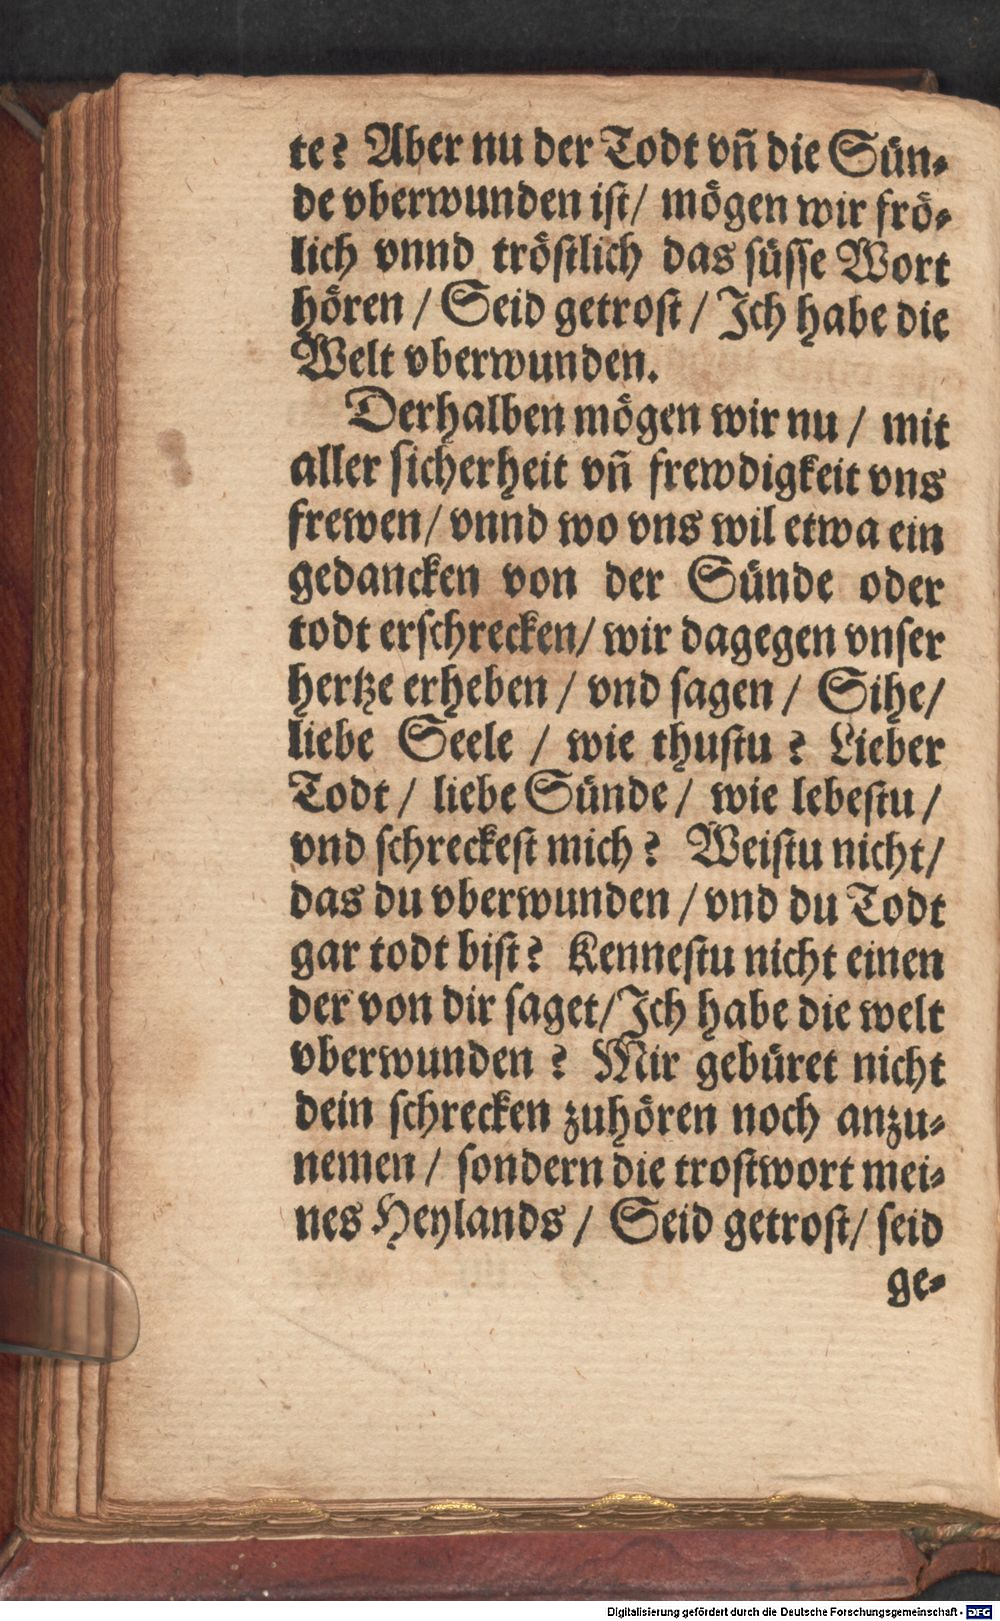 te? Aber nu der Todt vñ die Sün-
de vberwunden ist/ mögen wir frö-
lich vnnd tröstlich das süsse Wort
hören / Seid getrost / Ich habe die
Welt vberwunden.
Derhalben mögen wir nu / mit
aller sicherheit vñ frewdigkeit vns
frewen/ vnnd wo vns wil etwa ein
gedancken von der Sünde oder
todt erschrecken/ wir dagegen vnser
hertze erheben / vnd sagen / Sihe/
liebe Seele / wie thustu ? Lieber
Todt / liebe Sünde / wie lebestu /
vnd schreckest mich ? Weistu nicht/
das du vberwunden / vnd du Todt
gar todt bist? Kennestu nicht einen
der von dir saget/ Ich habe die welt
vberwunden ? Mir gebüret nicht
dein schrecken zuhören noch anzu-
nemen / sondern die trostwort mei-
nes Heylands / Seid getrost/ seid
ge-
Digitalisierung gefördert durch die Deutsche Forschungsgemeinschaft - DFG